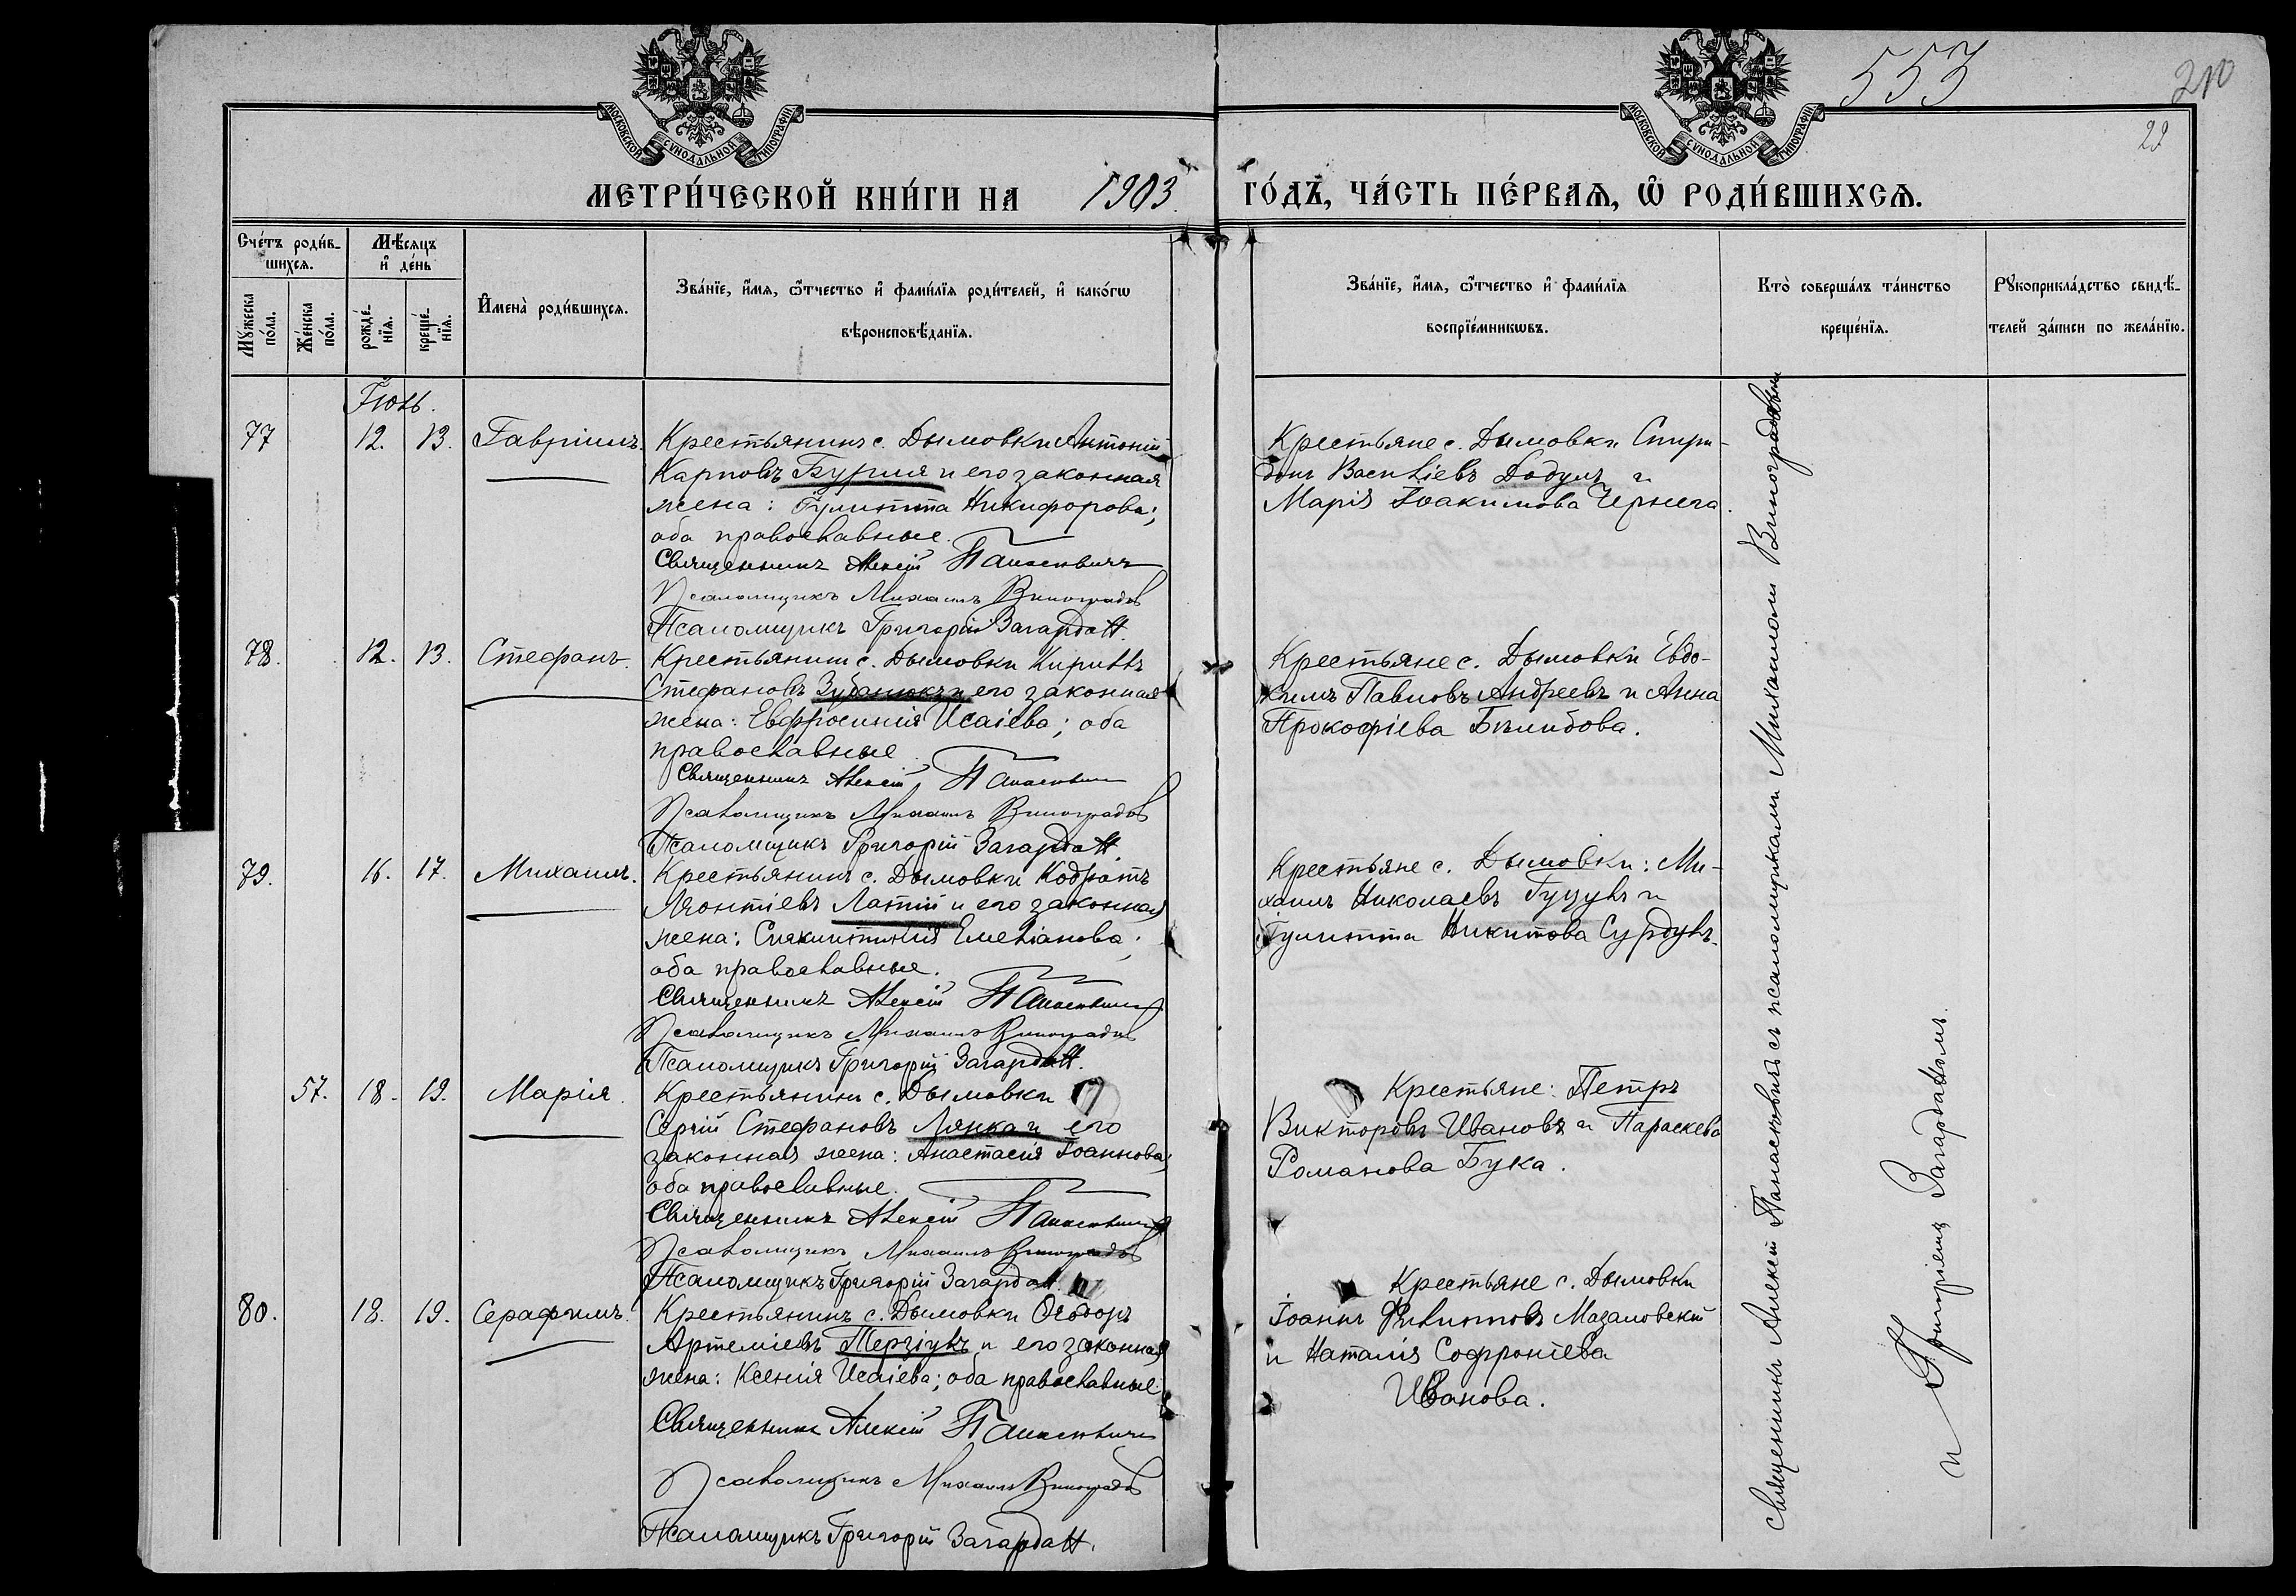 МОСКОВСКОЙ СѴНОДАЛЬНОЙ ТИПОГРАФІИ
МОСКОВСКОЙ СѴНОДАЛЬНОЙ ТИПОГРАФІИ
553
210
22
МЕТРИ́ЧЕСКОЙ КНИ́ГИ НА 1903 ГО́ДЪ, ЧА́СТЬ ПЕ́РВАѦ, Ѡ҆ РОДИ́ВШИХСѦ.
Сче́тъ роди́в-
шихсѧ.
Мꙋ́жеска
по́ла.
Же́нска
по́ла.
Мѣ́сѧцъ
и҆ де́нь
рожде́-
нїѧ.
креще́-
нїѧ.
И҆мена̀ роди́вшихсѧ.
Зва́нїе, и҆́мѧ, ѻ҆́тчество и҆ фами́лїѧ роди́телей, и҆ како́гѡ
вѣроисповѣ́данїѧ.
Зва́нїе, и҆́мѧ, ѻ҆́тчество и҆ фами́лїѧ
воспрїе́мникѡвъ.
Кто̀ соверша́лъ та́инство
креще́нїѧ.
Рꙋкоприкла́дство свидѣ́-
телей за́писи по жела́нїю.
Іюнь.
77 12. 13. Гавріилъ.
Крестьянинъ с. Дымовки Антоній
Карповъ и его законная
жена: Іулитта Никифорова;
оба православные.
Священникъ Алексій Панасевичъ
Псаломщикъ Михаилъ Виноградовъ
Псаломщикъ Григорій Загардонъ.
Крестьяне с. Дымовки Спири-
донъ Василіевъ Додулъ и
Марія Іоакимова Чернега.
78. 12. 13. Стефанъ.
Крестьянинъ с. Дымовки Кириллъ
Стефановъ Зубанюкъ и его законная
жена: Евфросинія Исаіева; оба
православные.
Священникъ Алексій Панасевичъ
Псаломщикъ Михаилъ Виноградовъ
Псаломщикъ Григорій
Крестьяне с. Дымовки Евдо-
кимъ Павловъ Андреевъ и Анна
Прокофіева
79. 16. 17. Михаилъ.
Крестьянинъ с. Дымовки Кодратъ
Леонтіевъ Латій и его законная
жена: Емеліанова;
оба православные.
Священникъ Алексій Панасевичъ
Псаломщикъ Михаилъ Виноградовъ
Псаломщикъ Григорій
Крестьяне с. Дымовки: Ми-
хаилъ Николаевъ Гуцулъ и
Іулитта Никитова Сурдулъ.
57. 18. 19. Марія.
Крестьянинъ с. Дымовки
Сергій Стефановъ Лянка и его
законная жена: Анастасія Іоаннова;
оба православные.
Священникъ Алексій Панасевичъ
Псаломщикъ Михаилъ Виноградовъ
Псаломщикъ Григорій
Крестьяне: Петръ
Викторовъ Ивановъ и Параскева
Романова Бука.
80. 18. 19. Серафимъ.
Крестьянинъ с. Дымовки Ѳеодоръ
Артеміевъ Терзіулъ и его законная
жена: Ксенія Исаіева; оба православные
Священникъ Алексій Панасевичъ
Псаломщикъ Михаилъ Виноградовъ
Псаломщикъ Григорій
Крестьяне с. Дымовки
Іоаннъ Филипповъ Мазаловскій
и Наталія Софроніева
Иванова.
Священникъ Алексій Панасевичъ съ псаломщиками Михаиломъ Виноградовымъ
и Григоріемъ